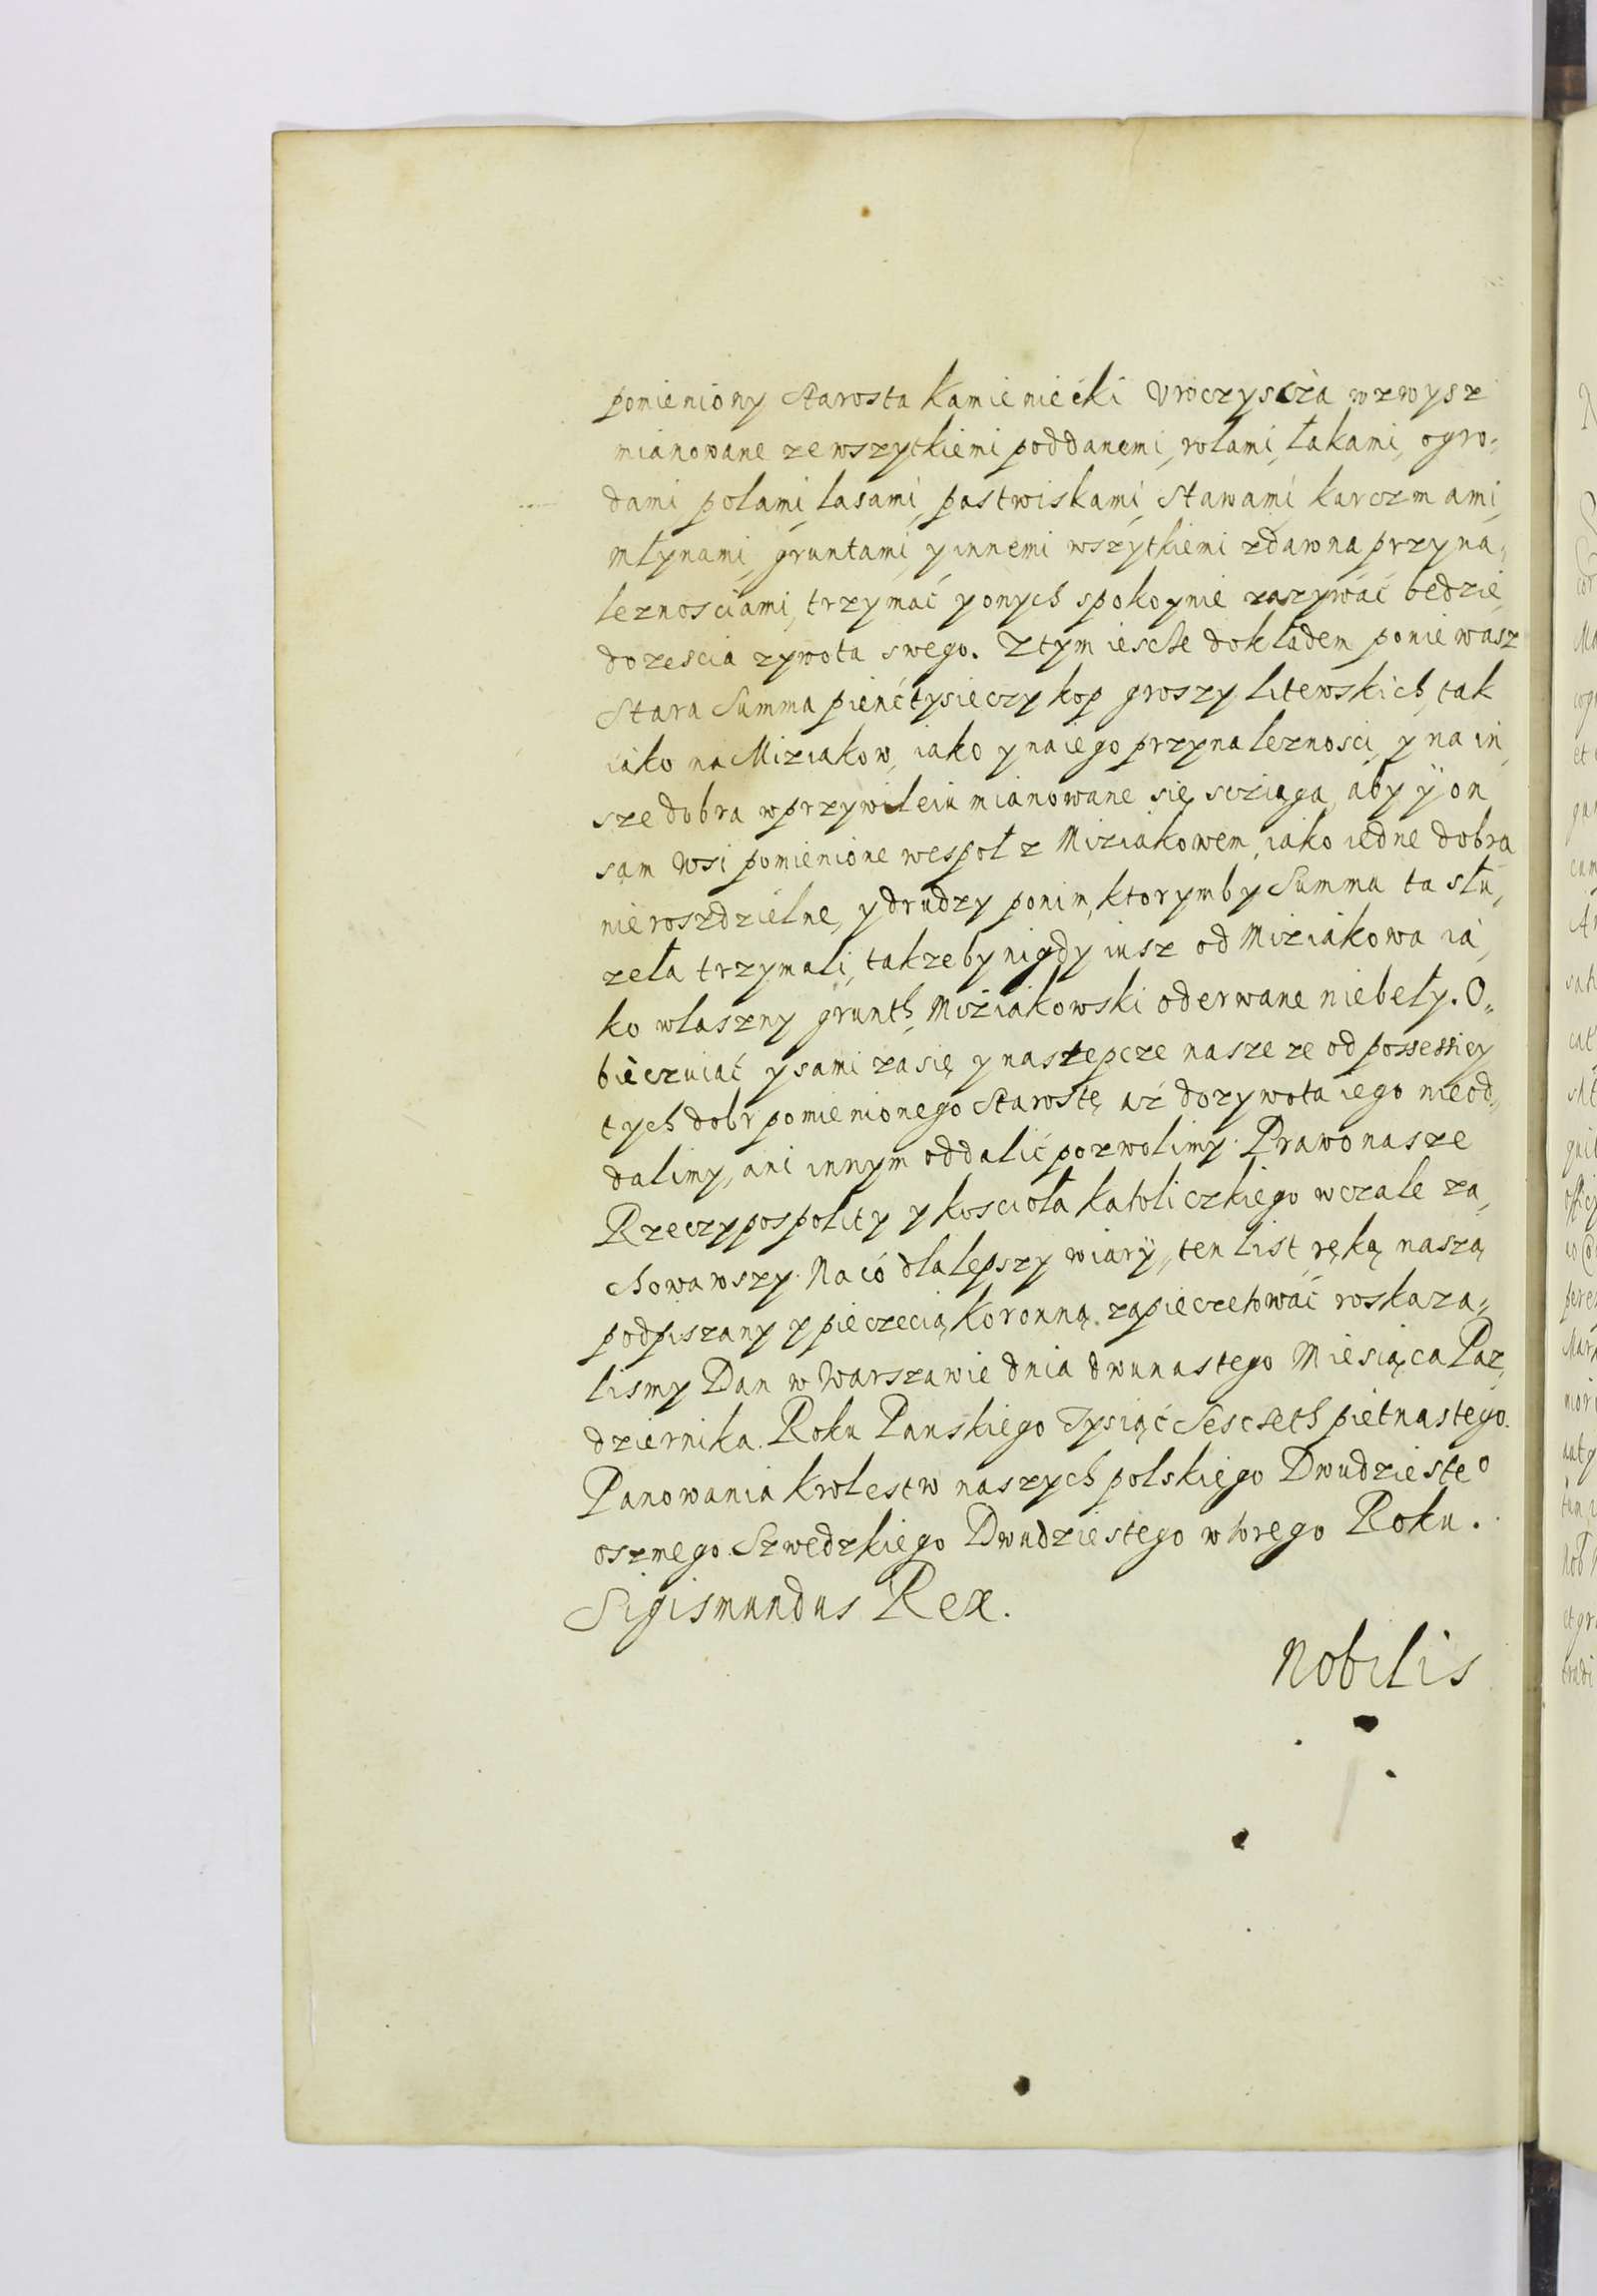 pomieniony Starosta Kamieniecki Vroczyscza wzwysz
mianowane ze wszytkiemi poddanemi, rolami, łakami, ogro„
dami polami, lasami, pastwiskami, Stawami karczmami,
młynami, gruntami, y innemi wszytkiemi zdawna przyna„
leznosciami, trzymać y onych spokoynie zazywać bedzie,
do zescia zywota swego. Z tym iescze dokładem poniewasz
Stara Summa pienć tysieczy kop groszy litewskich, tak
iako na Miziakow, iako y na iego przynaleznosci, y na in,
sze dobra w przywileiu mianowane się scziąga, aby ÿ on
sam Wsi pomienione wespoł z Miziakowem, iako iedne dobra
nierozdzielne, y drudzy po nim, ktorymby Summa ta słu,
zeła trzymali, takze by nigdy iusz od Miziakowa ia,
ko własny grunth Miziakowski oderwane niebeły. O„
bieczuiać y sami za się y nastepcze nasze ze od possessiey
tych dobr pomienionego Starostę, aż do zywota iego nieod„
dalimy, ani innym oddalić pozwolimy. Prawo nasze
Rzeczypospolity y koscioła katoliczkiego w czale za,
chowawszy. Na co dla lepszy wiarÿ, ten list ręką naszą
podpiszany y pieczecią Koronną zapieczetować roskaza„
lismy Dan w Warszawie dnia dwunastego Miesiąca Paz,
dziernika. Roku Panskiego Tysiąć Sesczeth pietnastego.
Panowania krolestw naszych polskiego Dwudziesteo
oszmego. Szwedzkiego Dwudziestego wtorego Roku.
Sigismundus Rex.
Nobilis